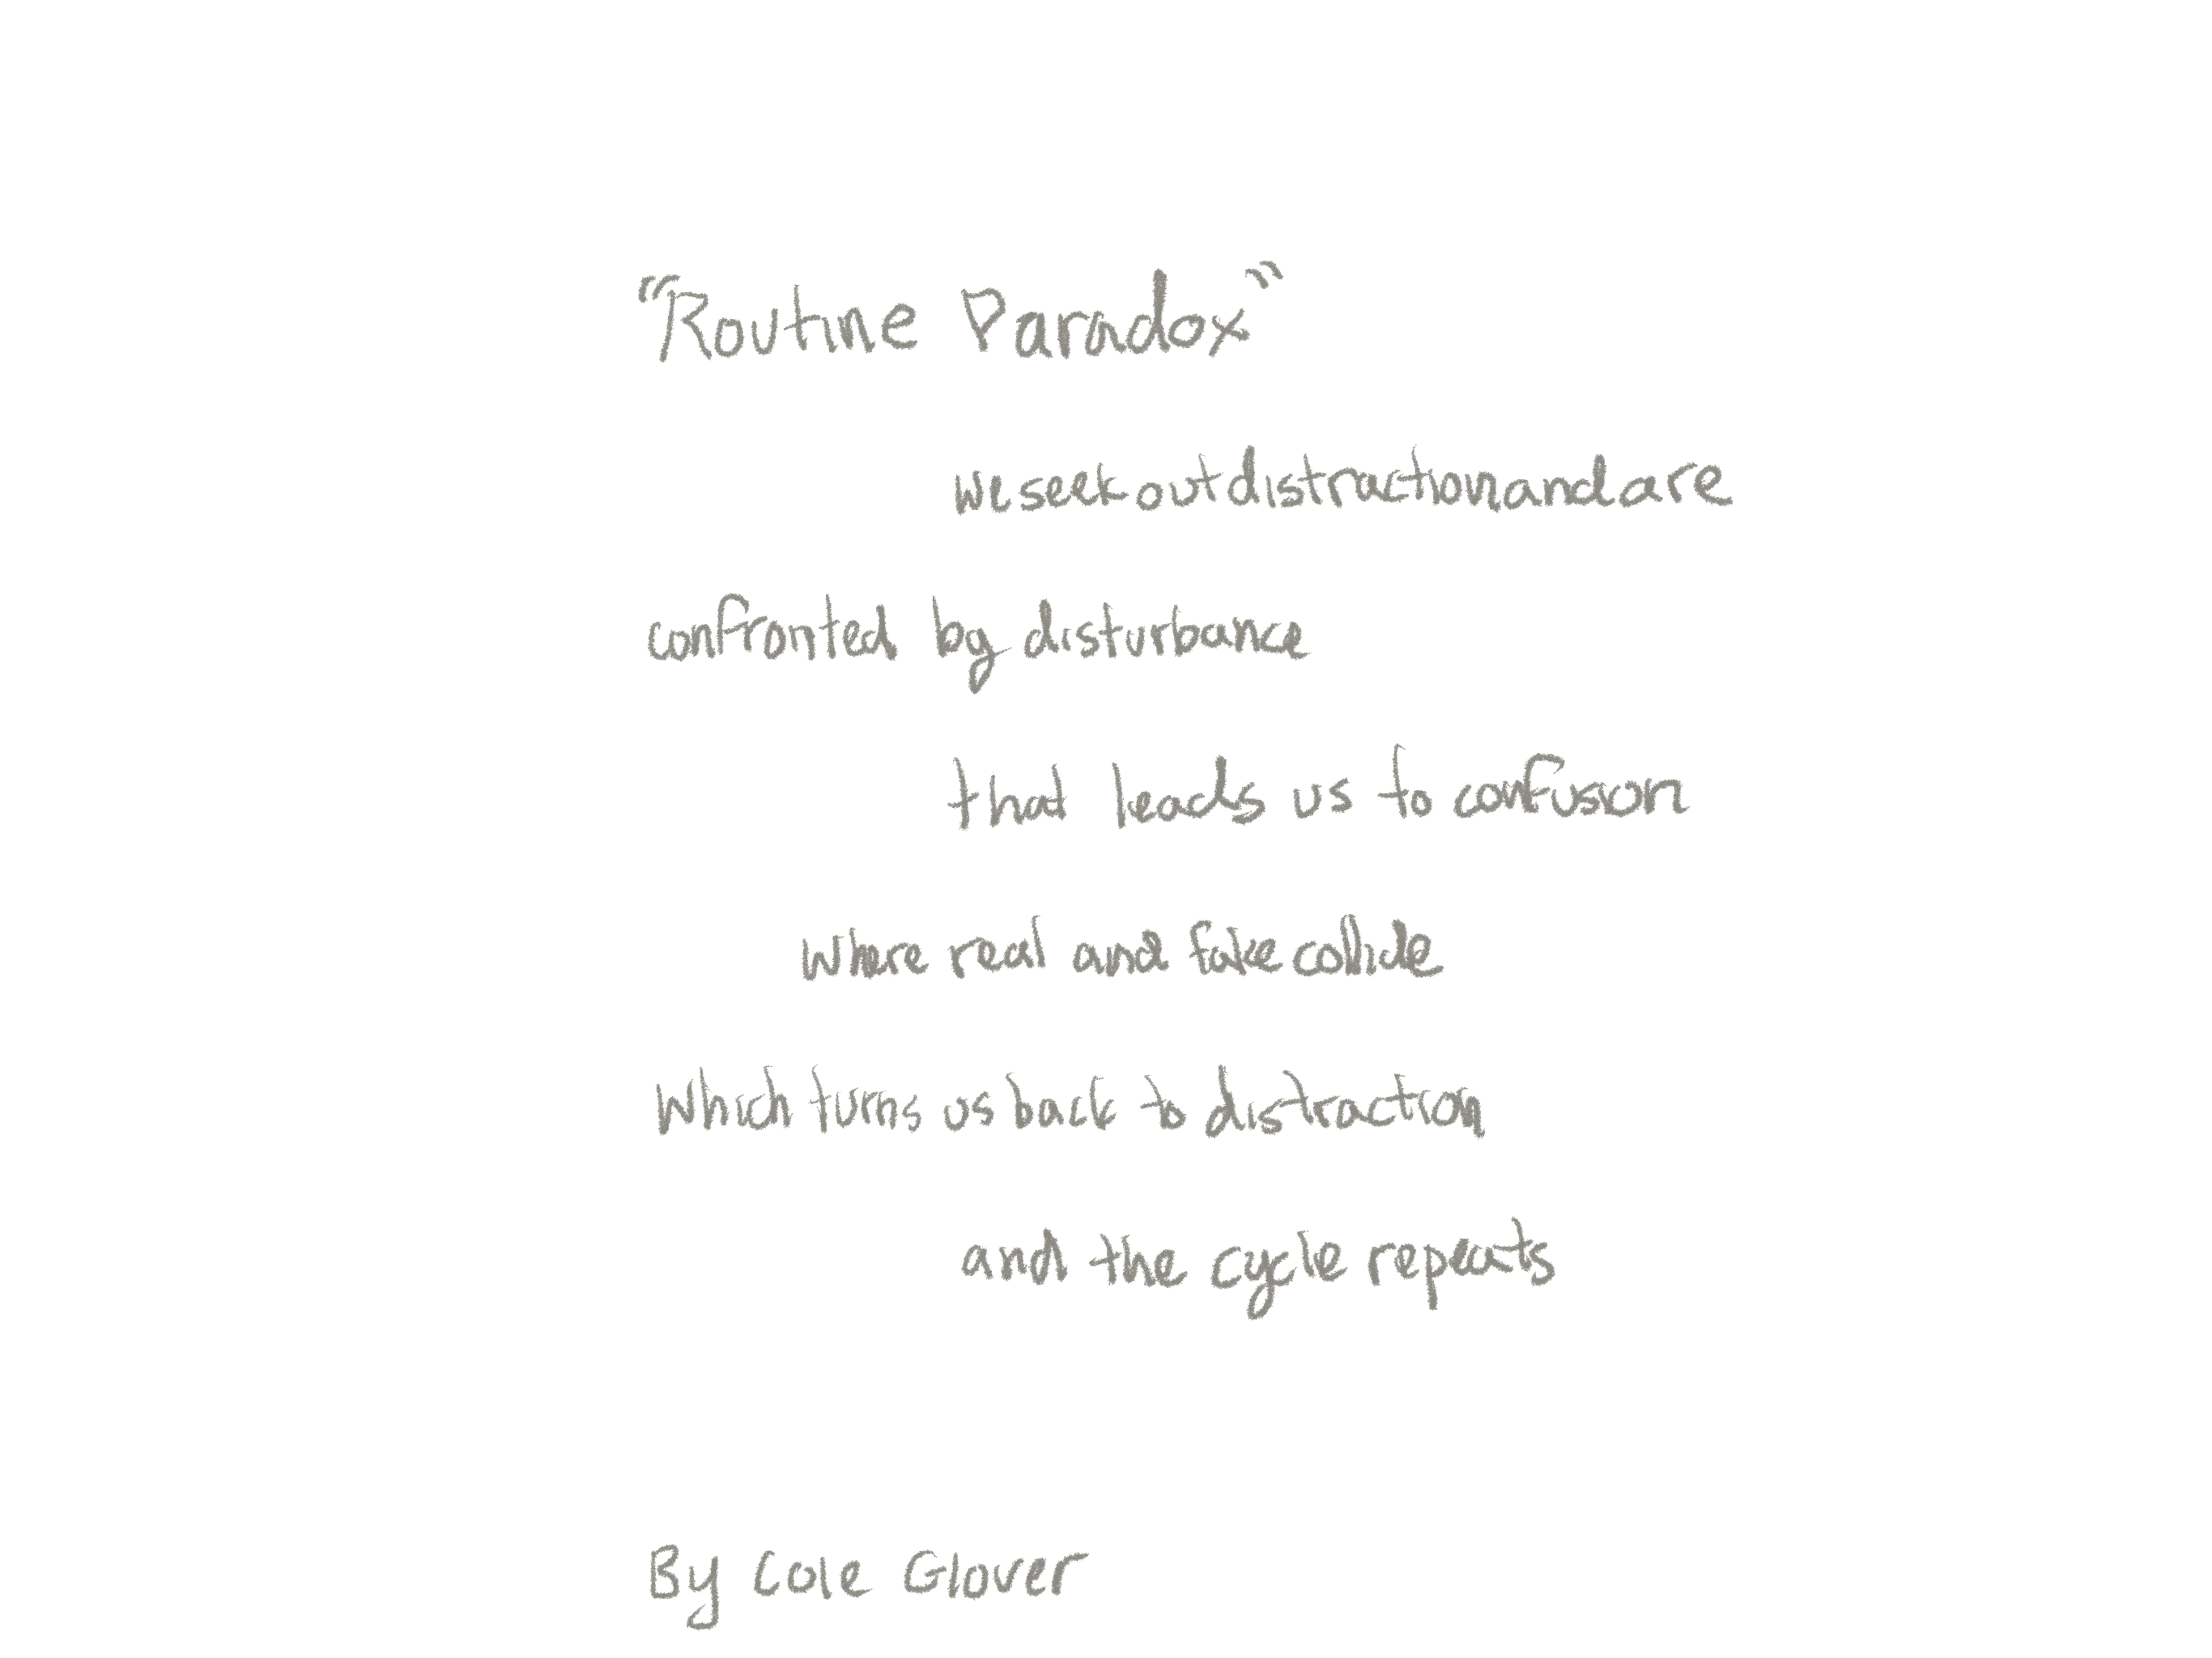 "Routine Paradox"
we seek out distraction and are
confronted by disturbance
that leads us to confusion
where real and fake collide
which turns us back to distraction
and the cycle repeats
By Cole Glover